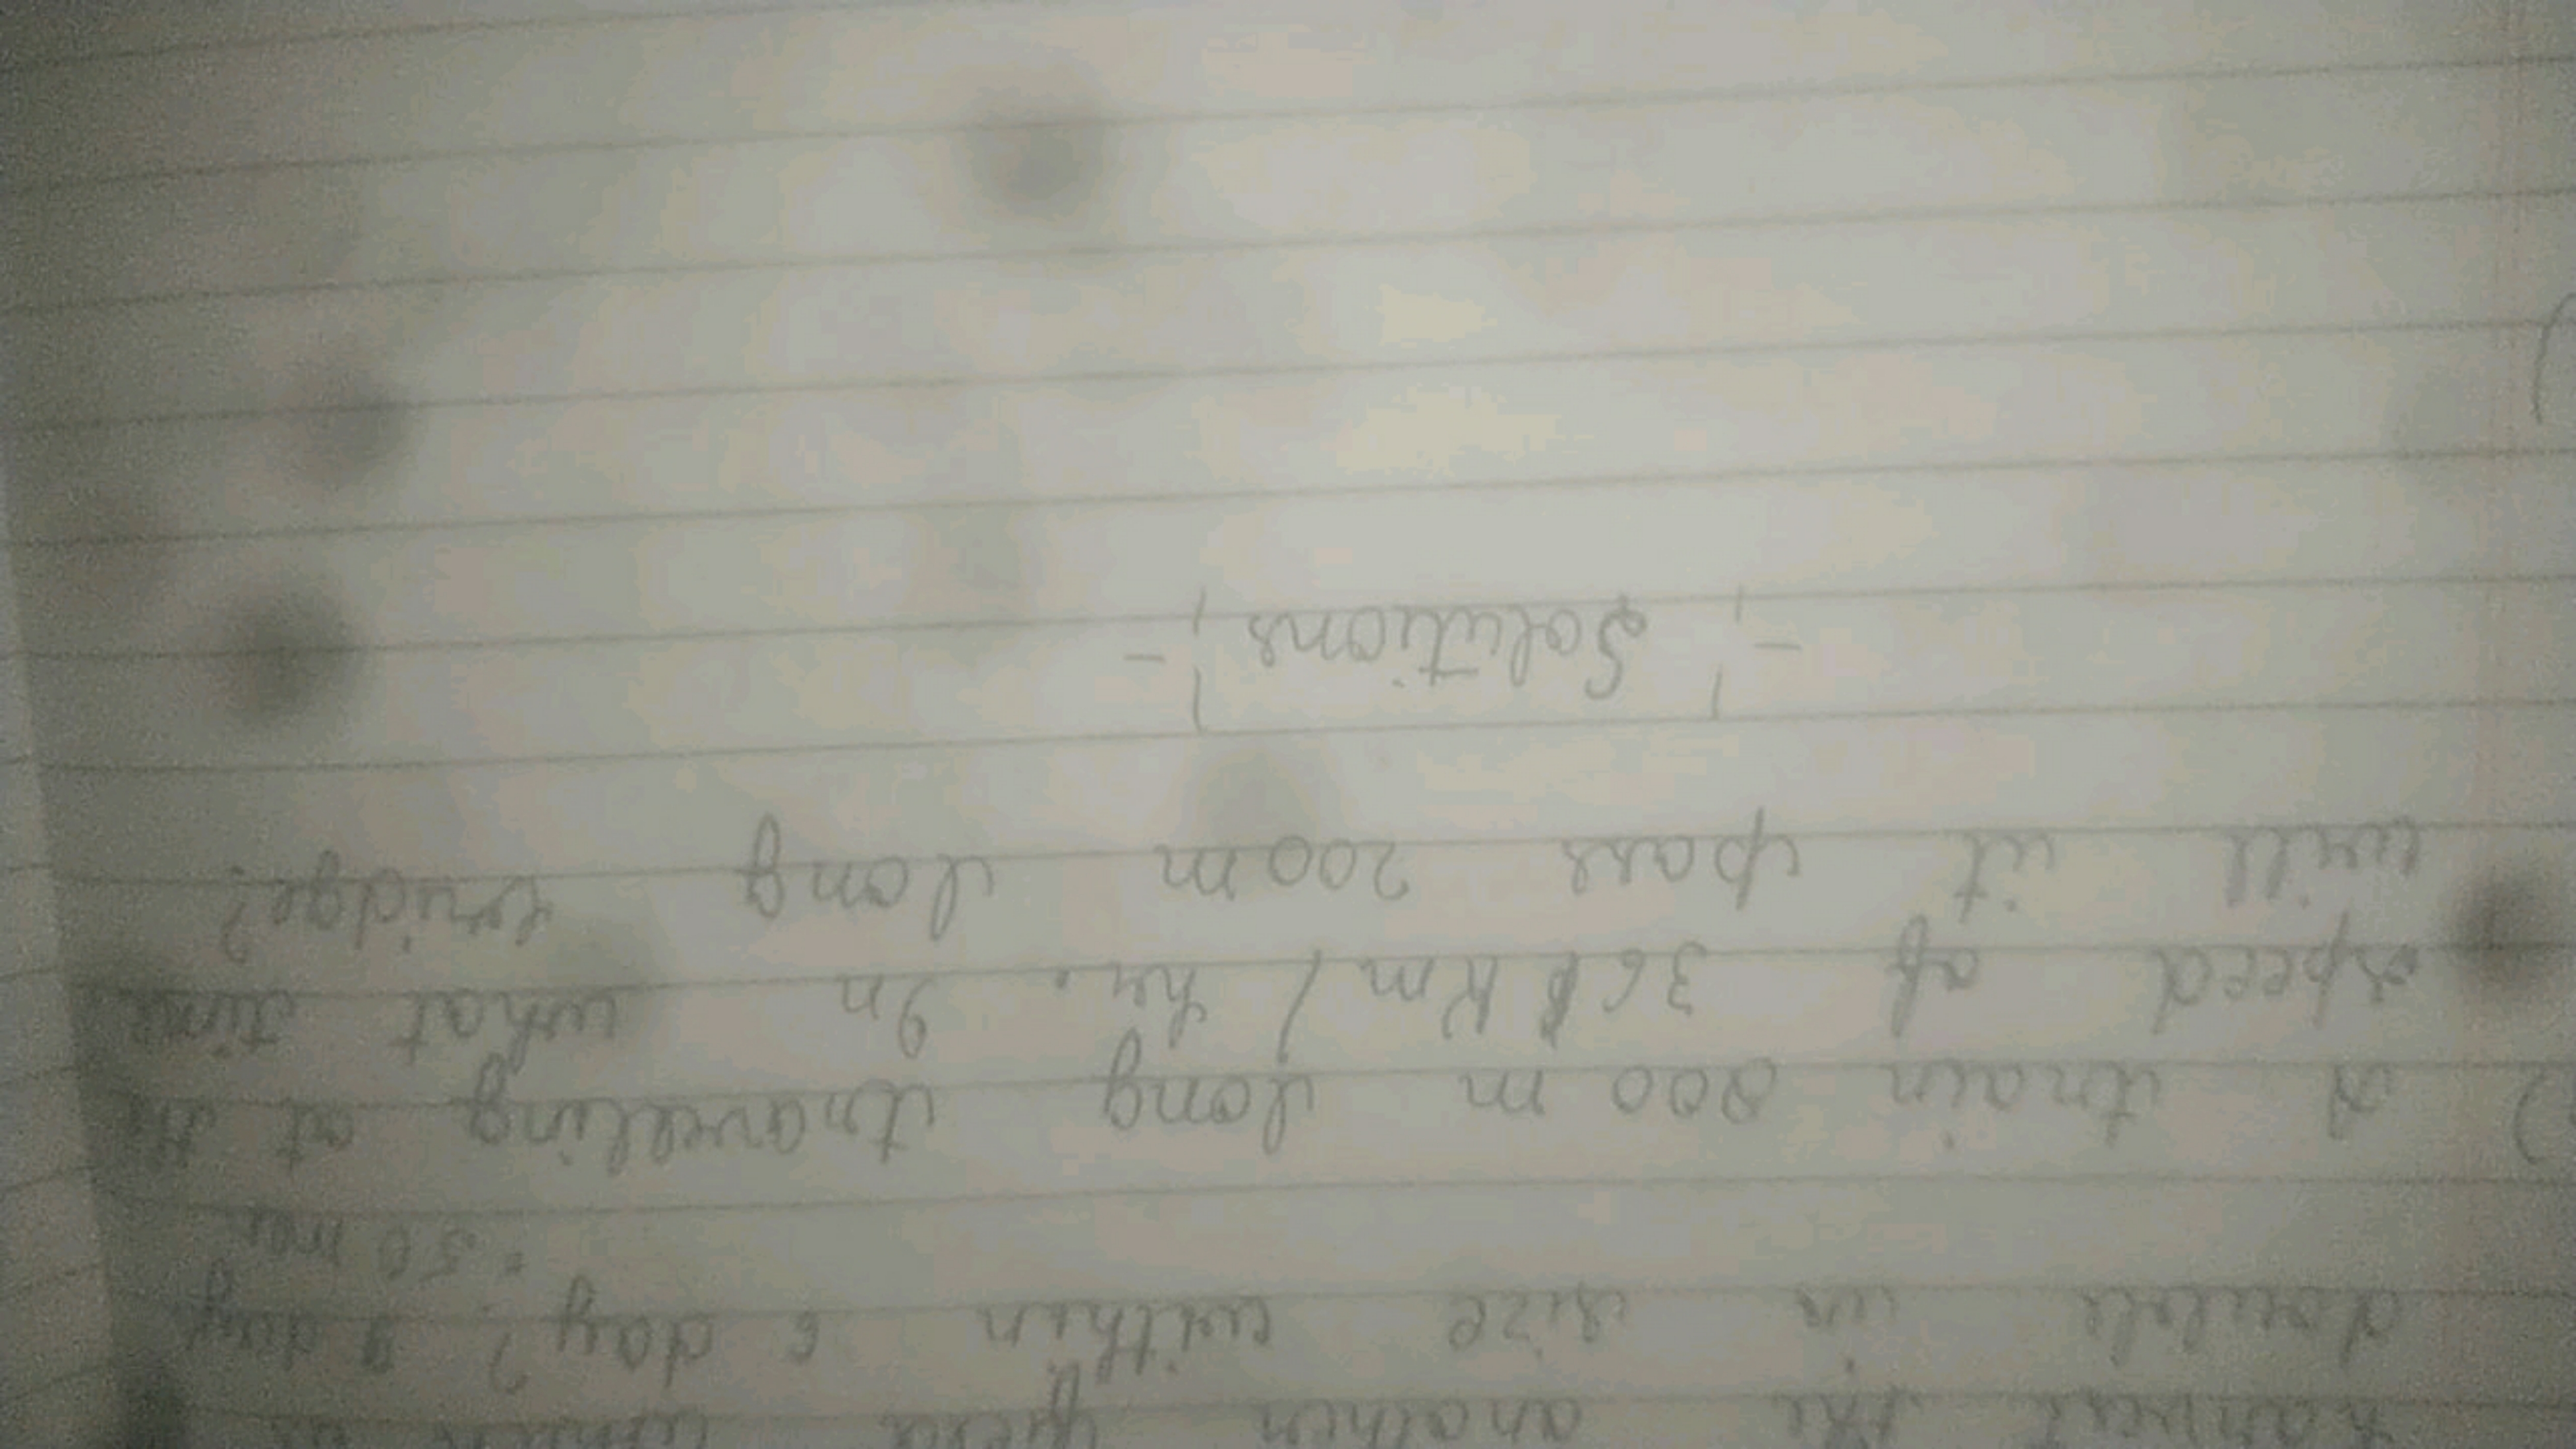 harvest the another field which is
double in size within 6 day? 9 day
= 50 men
) A train 800 m long traveling at the
speed of 360 Km/hr. In what time
will it pass 200m long bridge?
-¦ Solutions ¦-
)